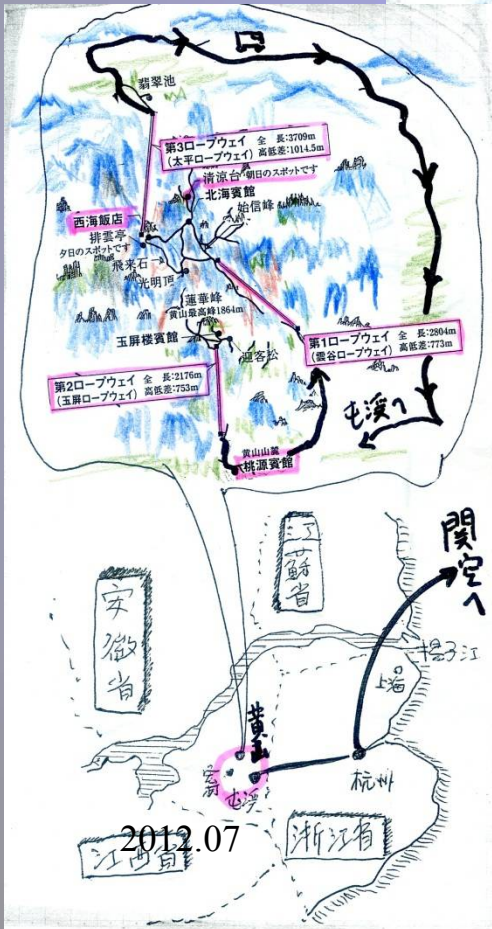 翡翠池
第3ロープウェイ 全 長:3709m
(太平ロープウェイ) 高低差:1014.5m
清涼台 朝日のスポットです
北海賓館
始信峰
西海飯店
排雲亭
夕日のスポットです
飛来石
光明頂
蓮華峰
黄山最高峰1864m
玉屏楼賓館
迎客松
第1ロープウェイ 全 長:2804m
(雲谷ロープウェイ) 高低差:773m
第2ロープウェイ 全 長:2176m
(玉屏ロープウェイ) 高低差:753m
屯渓へ
黄山山麓
桃源賓館
江蘇省
関空へ
安徽省
揚子江
上海
黄山
屯渓
杭州
2012.07
江西省
浙江省